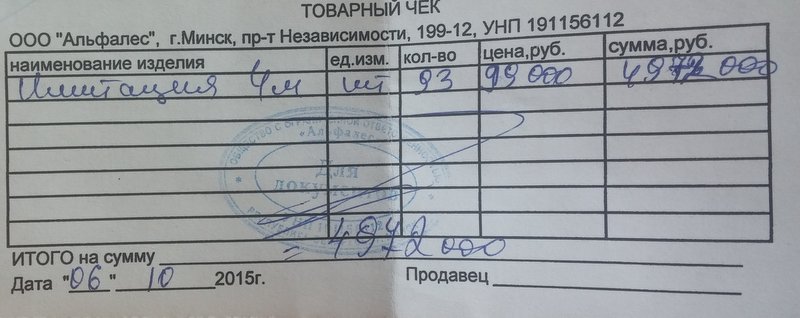 ТОВАРНЫЙ ЧЕК
ООО "Альфалес", г.Минск, пр-т Независимости, 199-12, УНП 191156112
наименование изделия ед.изм. кол-во цена,руб. сумма,руб.
Имитация 4м шт 000 000
ОБЩЕСТВО С ОГРАНИЧЕННОЙ ОТВЕТСТВЕННОСТЬЮ
«Альфалес»
Для
документов
= 4972 000
ИТОГО на сумму
Дата "06" 10 2015г. Продавец